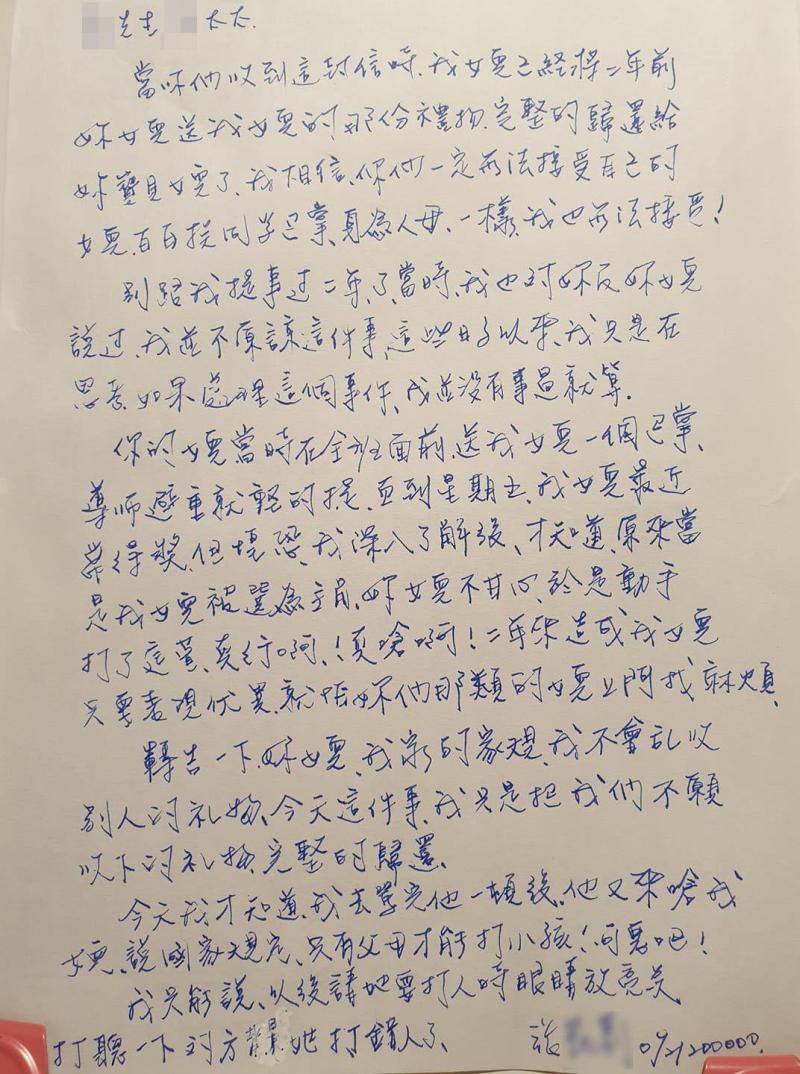 先生 太太.
當你們收到這封信時,我女兒已經將二年前
妳女兒送我女兒的那份禮物,完整的歸還給
妳寶貝女兒了,我相信,你們一定無法接受自己的
女兒,白白挨同學巴掌,身為人母,一樣,我也無法接受!
別跟我提事过二年了,當時,我也对妳及妳女兒
說过,我並不原諒這件事,這些日子以來,我只是在
思考,如果處理這個事件,我並沒有事過就算.
你的女兒當時在全班面前,送我女兒一個巴掌,
導師避重就輕的提,直到星期五,我女兒最近
常得獎,但惶恐,我深入了解後,才知道,原來當
是我女兒被選為主角,妳女兒不甘心,於是動手
打了這蕓,真行啊,!真嗆啊!二年來造成我女兒
只要表現优異,就怕妳們那類的女兒上門找麻煩,
轉告一下,妳女兒,我家的家規,我不會乱收
別人的礼物,今天這件事,我只是把我們不願
收下的礼物,完整的歸還.
今天我才知道,我去學完他一頓後,他又來嗆我
女兒,說國家規定,只有父母才能打小孩!可惡吧!
我只能說,以後請她要打人時眼睛放亮点
打聽一下对方 她打錯人了,
0921200000.